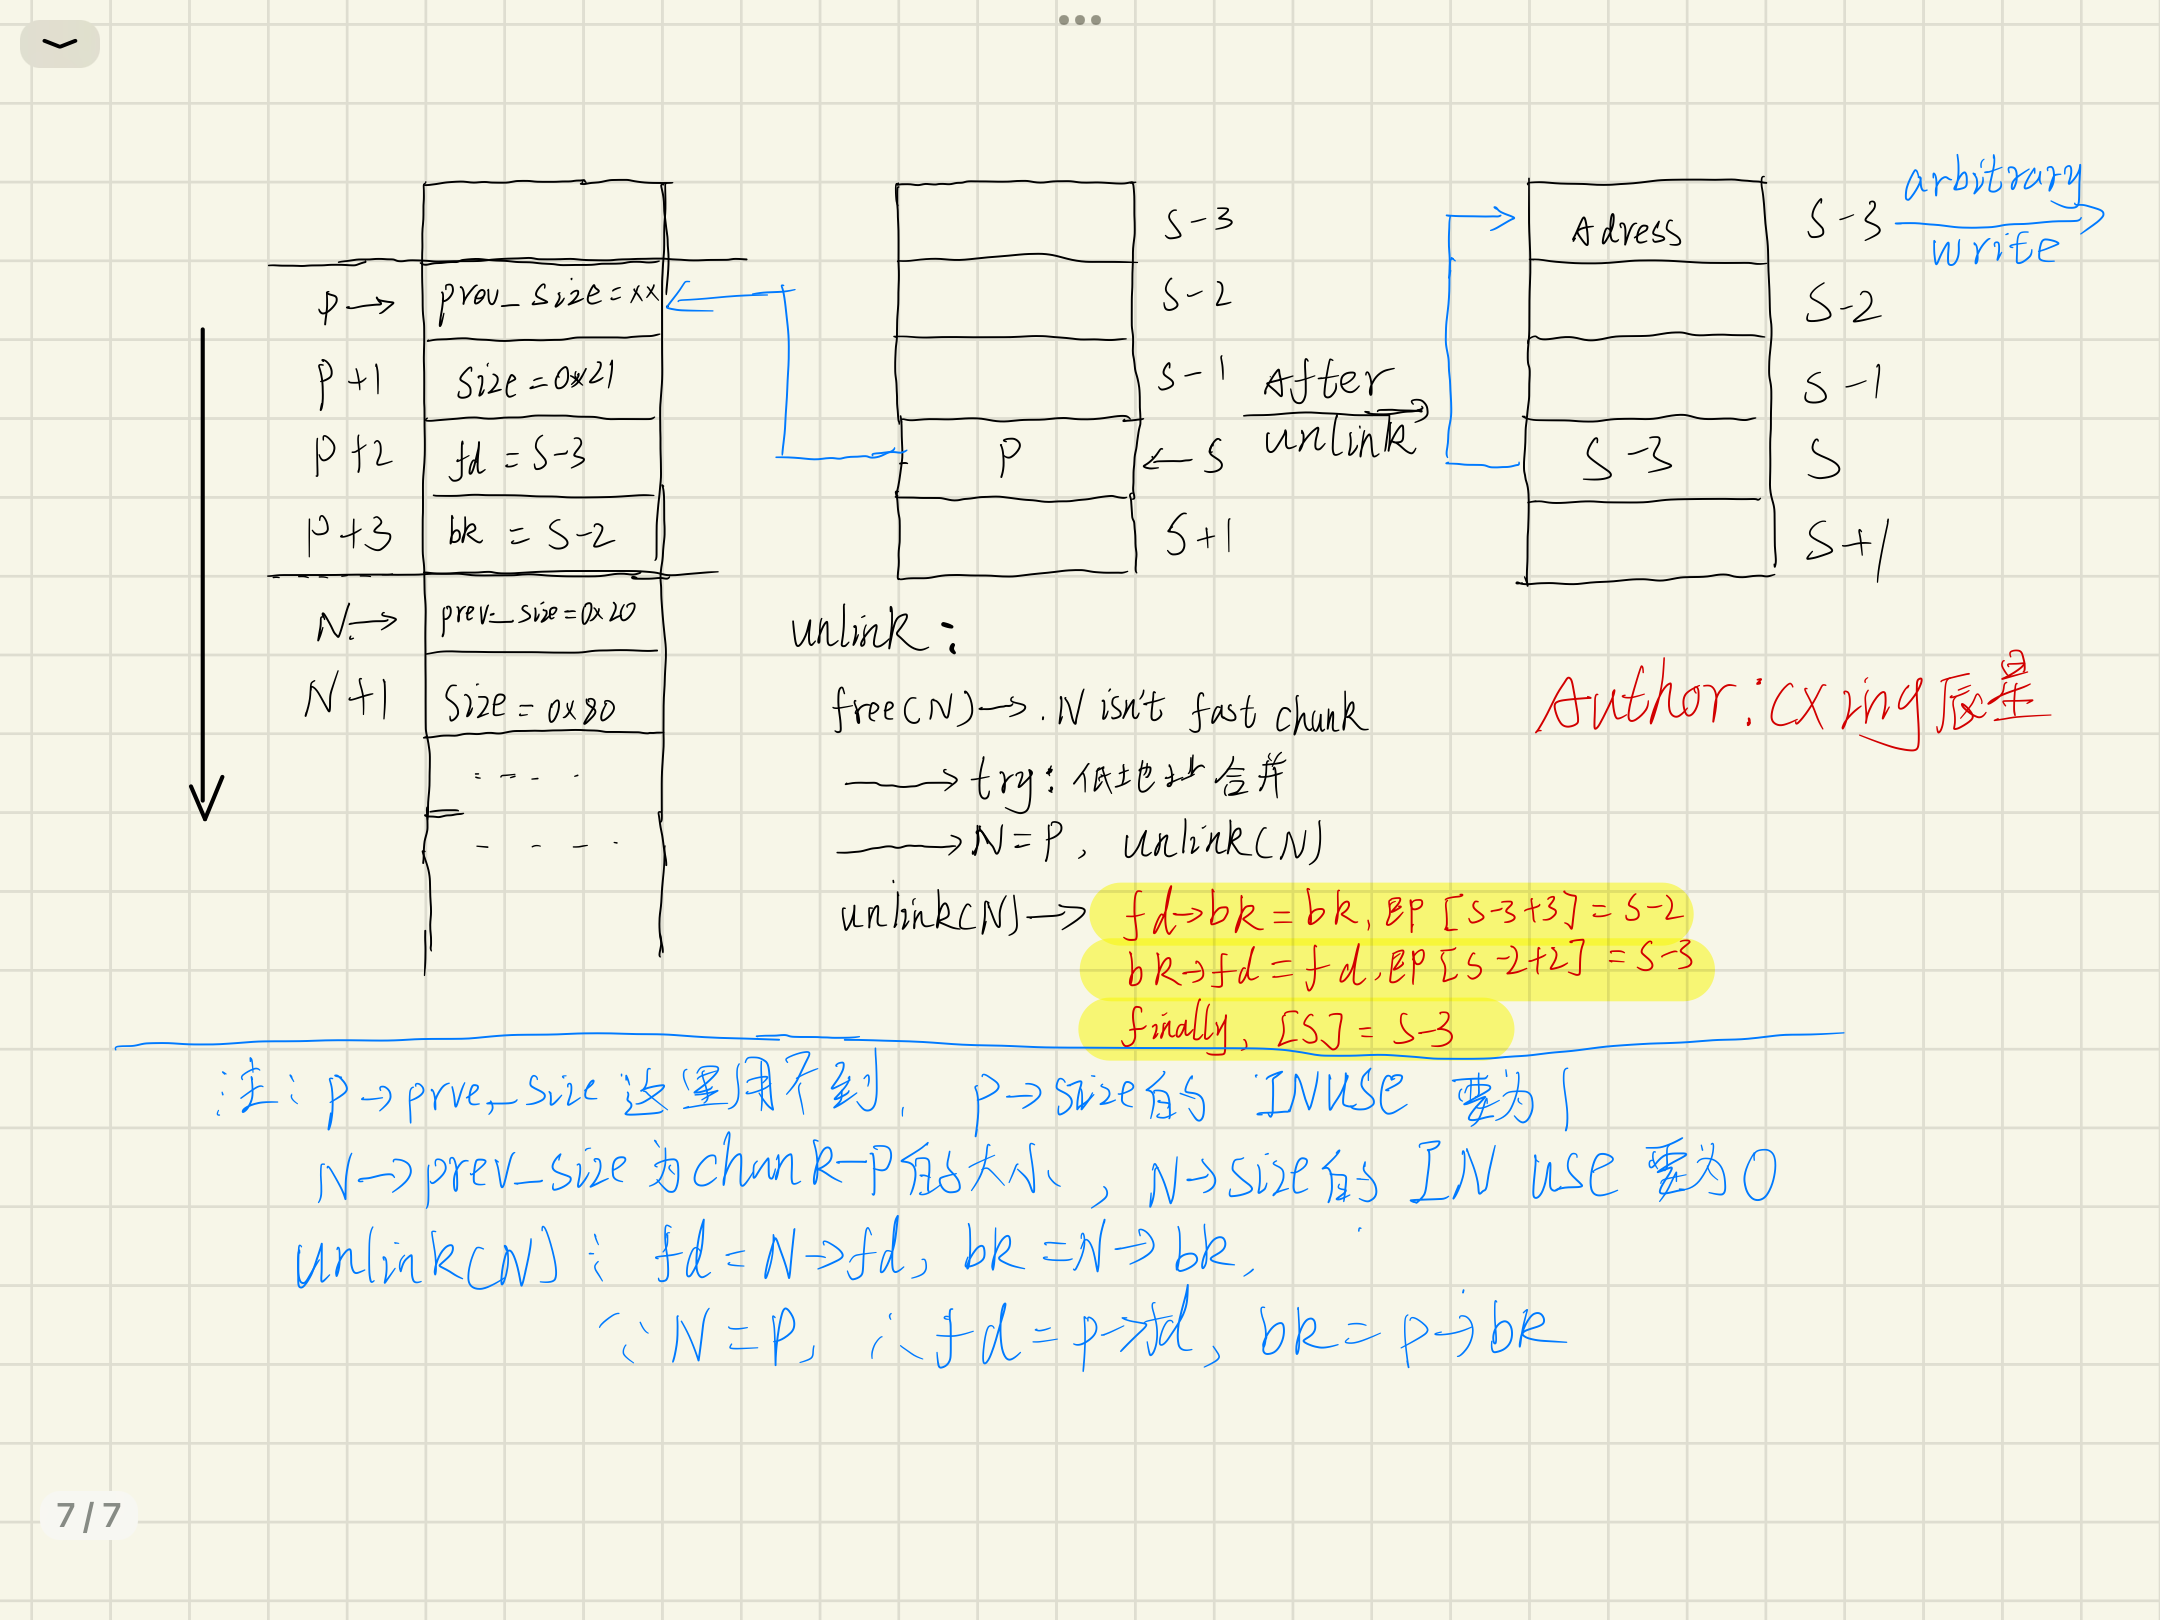 P→ prev_size=xx
P+1 size=0x21
P+2 fd=S-3
P+3 bk=S-2
N→ prev_size=0x20
N+1 size=0x80
S-3
S-2
S-1
P ←S
S+1
After
unlink
Adress S-3
arbitrary
write
S-2
S-1
S-3 S
S+1
unlink:
free(N)→.N isn't fast chunk
→try:低地址合并
→N=P, unlink(N)
unlink(N)→fd→bk=bk,即[S-3+3]=S-2
bk→fd=fd,即[S-2+2]=S-3
finally, [S]=S-3
Author:cxing辰星
注:P→prve_size这里用不到, P→size的INUSE要为1
N→prev_size为chunk-P的大小,N→size的INUSE要为0
unlink(N):fd=N→fd, bk=N→bk,
∵N=P, ∴fd=p→fd, bk=p→bk
7/7